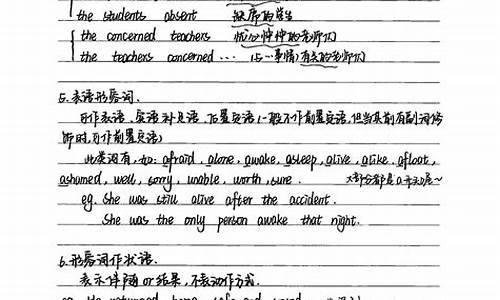 the students absent 缺席的学生
the concerned teachers 忧心忡忡的老师们
the teachers concerned … (与…事情)有关的老师们
5. 表语形容词.
可作表语、宾语补足语、后置定语(一般不作前置定语,但当其前有副词修
饰时,可作前置定语)
此类词有,如: afraid, alone, awake, asleep, alive, alike, afloat,
ashamed, well, sorry, unable, worth, sure. 大部分都是a开头哦~
eg. She was still alive after the accident.
She was the only person awake that night.
6. 形容词作状语.
表示伴随 or 结果, 不表动作方式.
eg. He returned home, safe and sound.